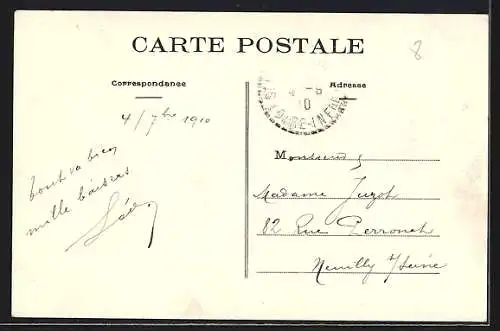 CARTE POSTALE
8
Correspondance
Adresse
4 - 9
10
LOIRE-INFRE
4/7bre 1910
tout va bien
mille baisers
Monsieur
Madame Juzot
82 Rue Perronet
Neuilly s/Seine